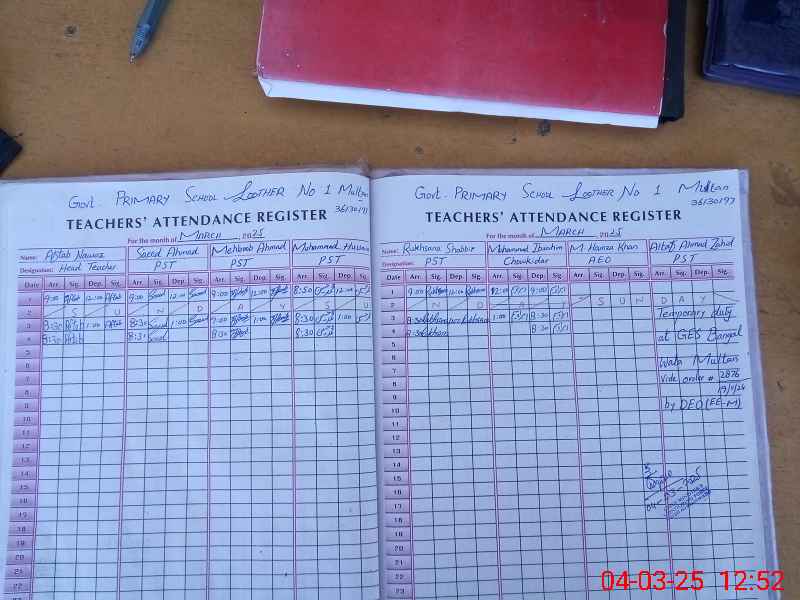 Govt. PRIMARY SCHOOL LOOTHER NO 1 Multan
36130197
TEACHERS' ATTENDANCE REGISTER
For the month of MARCH , 2025
Name: Aftab Nawaz Saeed Ahmad Mehboob Ahmad Mohammad Hussain
Designation: Head Teacher PST PST PST
Date Arr. Sig. Dep. Sig. Arr. Sig. Dep. Sig. Arr. Sig. Dep. Sig. Arr. Sig. Dep. Sig.
1 9:00 Aftab 12:00 Aftab 9:00 Saeed 12:00 Saeed 9:00 12:00 8:50 12:00
2 S U N D A Y S U
3 8:30 Aftab 1:00 Aftab 8:30 Saeed 1:00 Saeed 9:00 1:00 8:30 1:00
4 8:30 Aftab 8:30 Saeed 8:30 8:30
5
6
7
8
9
10
11
12
13
14
15
16
17
18
19
20
21
22
Govt. PRIMARY SCHOOL LOOTHER NO 1 Multan
36130197
TEACHERS' ATTENDANCE REGISTER
For the month of MARCH , 2025
Name: Rukhsana Shabbir Mohammad Ibrahim M. Hamza Khan Altaf Ahmad Zahid
Designation: PST Chowkidar AEO PST
Date Arr. Sig. Dep. Sig. Arr. Sig. Dep. Sig. Arr. Sig. Dep. Sig. Arr. Sig. Dep. Sig.
1 9:00 12:00 12:00 9:00
2 N D A Y S U N D A Y
3 1:00 8:30 Temporary duty
4 8:30 at GES Bangal
5
6 Wala Multan
7 Vide order # 2876
8
9 by DEO (EE-M)
10
11
12
13
14
15
16 04-03-2025
17
18
19
20
21
22
23
04-03-25 12:52